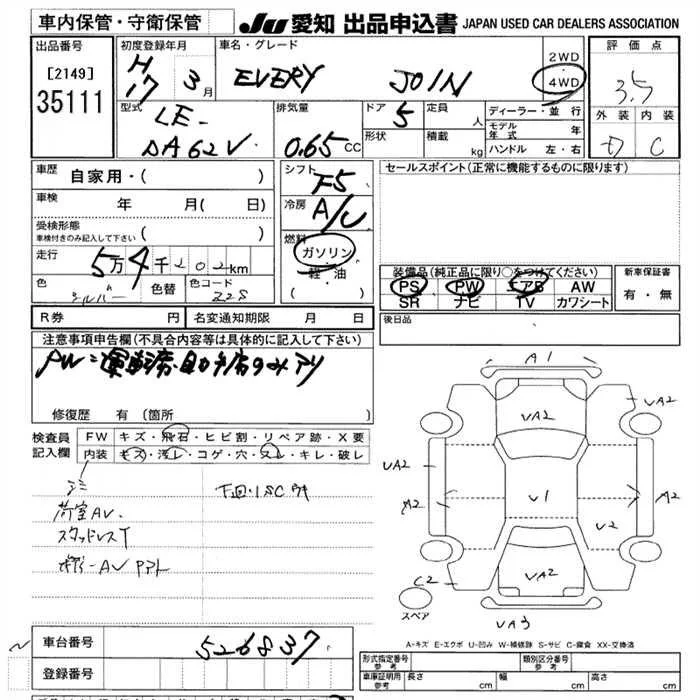 車内保管・守衛保管
JU 愛知 出品申込書 JAPAN USED CAR DEALERS ASSOCIATION
出品番号
[2149]
35111
初度登録年月
H17 3月
車名・グレード
EVERY JOIN
2WD
・
4WD
評価点
3.5
外装 内装
D C
型式
LE-
DA62V
排気量
0.65 CC
ドア
5
形状
定員
人
積載
kg
ディーラー・並行
モデル年式 年
ハンドル 左・右
車歴
自家用・( )
車検 年 月( 日)
受検形態
車検付きのみ記入して下さい ( )
走行
5万4千202km
色
シルバー
色替
色コード
Z2S
シフト
F5
冷房
A/C
燃料
ガソリン
・
軽・油
( )
セールスポイント(正常に機能するものに限ります)
装備品(純正品に限り○をつけてください)
PS PW エアB AW
SR ナビ TV カワシート
新車保証書
有・無
R券 円
名変通知期限 月 日
後日品
注意事項申告欄(不具合内容等は具体的に記入して下さい)
PW=運転席・助手席のみアリ
修復歴 有(箇所
検査員
記入欄
FW キズ・飛石・ヒビ割・リペア跡・X要
内装 キズ・汚レ・コゲ・穴・スレ・キレ・破レ
荷室AV.
スタッドレスT
下回・1SC
A1
VA2
VA2
VA2
A2
V1
V2
A2
C2
VA2
VA3
スペア
A-キズ E-エクボ U-凹み W-補修跡 S-サビ C-腐食 XX-交換済
車台番号
526837
登録番号
形式指定番号
参考
類別区分番号
参考
車庫証明用
参考
長さ cm
幅 cm
高さ cm